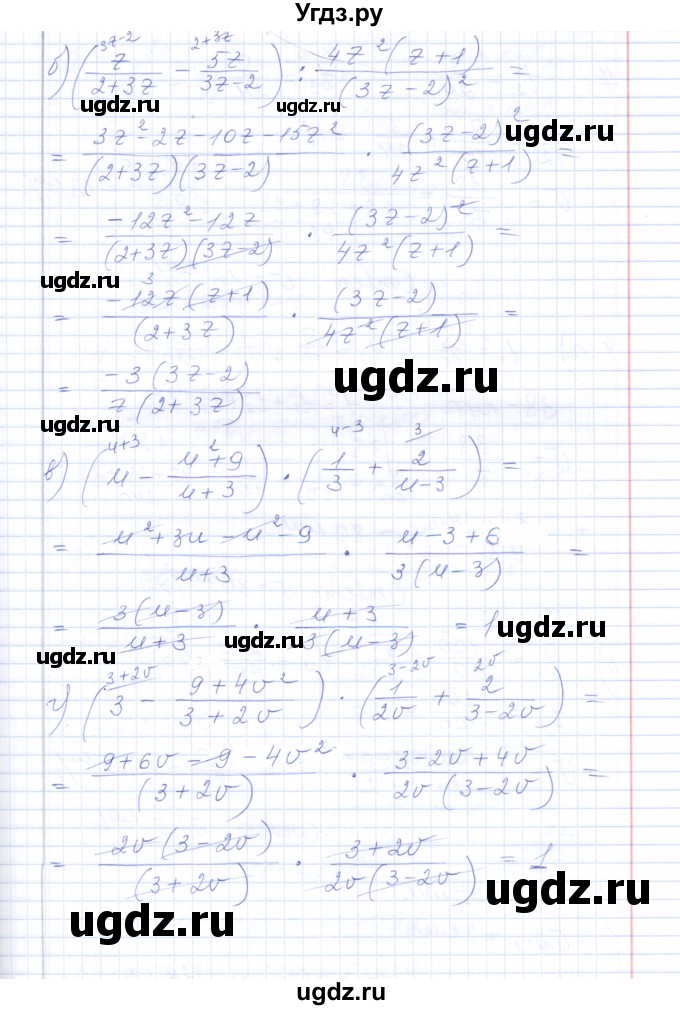 Угдз.ру
б) (z/(2+3z) - 5z/(3z-2)) : 4z²(z+1)/(3z-2)² =
3z-2   2+3z
= (3z²-2z-10z-15z²)/((2+3z)(3z-2)) · (3z-2)²/(4z²(z+1)) =
ugdz.ru
= (-12z²-12z)/((2+3z)(3z-2)) · (3z-2)²/(4z²(z+1)) =
ugdz.ru
= (-12z(z+1))/(2+3z) · (3z-2)/(4z²(z+1)) =
3
= (-3(3z-2))/(z(2+3z))
ugdz.ru
ugdz.ru
в) (u - (u²+9)/(u+3)) · (1/3 + 2/(u-3)) =
u+3   u-3   3
= (u²+3u-u²-9)/(u+3) · (u-3+6)/(3(u-3)) =
= 3(u-3)/(u+3) · (u+3)/(3(u-3)) = 1
ugdz.ru
ugdz.ru
ugdz.ru
г) (3 - (9+4v²)/(3+2v)) · (1/2v + 2/(3-2v)) =
3+2v   3-2v   2v
= (9+6v-9-4v²)/(3+2v) · (3-2v+4v)/(2v(3-2v)) =
= 2v(3-2v)/(3+2v) · (3+2v)/(2v(3-2v)) = 1
ugdz.ru
ugdz.ru
ugdz.ru